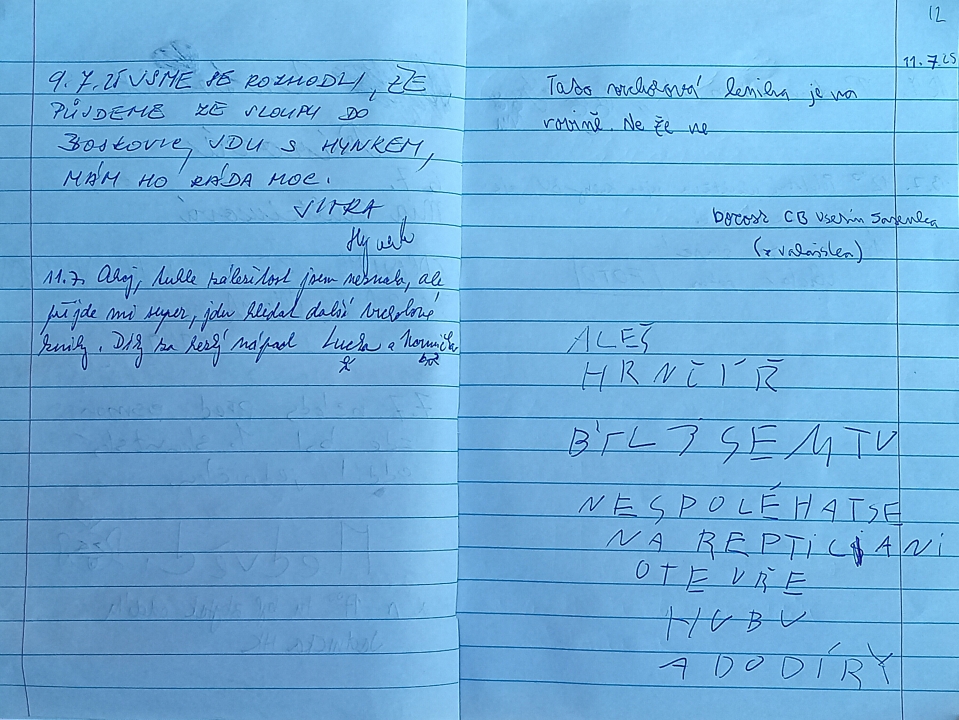 9.7.25 JSME SE ROZHODLI, ŽE
PŮJDEME ZE SLOUPU DO
BOSKOVIC, JDU S HYNKEM,
MÁM HO RÁDA MOC.
JITKA
Hynek
11.7. Ahoj, tuhle záležitost jsem neznala, ale
přijde mi super, jdu hledat další vrcholové
knihy. Díky za hezký nápad Lucka a
12
11.7.25
Tato vrcholová knížka je na
rovině. Ne že ne
(z valašska)
ALEŠ
HRNČÍŘ
BÝL JSEM TU
NESPOLÉHAT SE
NA REPTILIANI
OTEVŘE
HUBU
A DO DÍRY